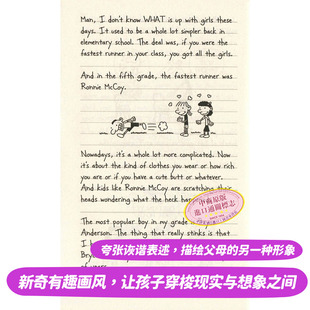 Man, I don't know WHAT is up with girls these
days. It used to be a whole lot simpler back in
elementary school. The deal was, if you were the
fastest runner in your class, you got all the girls.
And in the fifth grade, the fastest runner was
Ronnie McCoy.
Nowadays, it's a whole lot more complicated. Now
it's about the kind of clothes you wear or how rich
you are or if you have a cute butt or whatever.
And kids like Ronnie McCoy are scratching their
heads wondering what the heck
中商原版
進口通關標志
The most popular boy in my grade is
Anderson. The thing that really stinks is that
夸张诙谐表述，描绘父母的另一种形象
新奇有趣画风，让孩子穿梭现实与想象之间